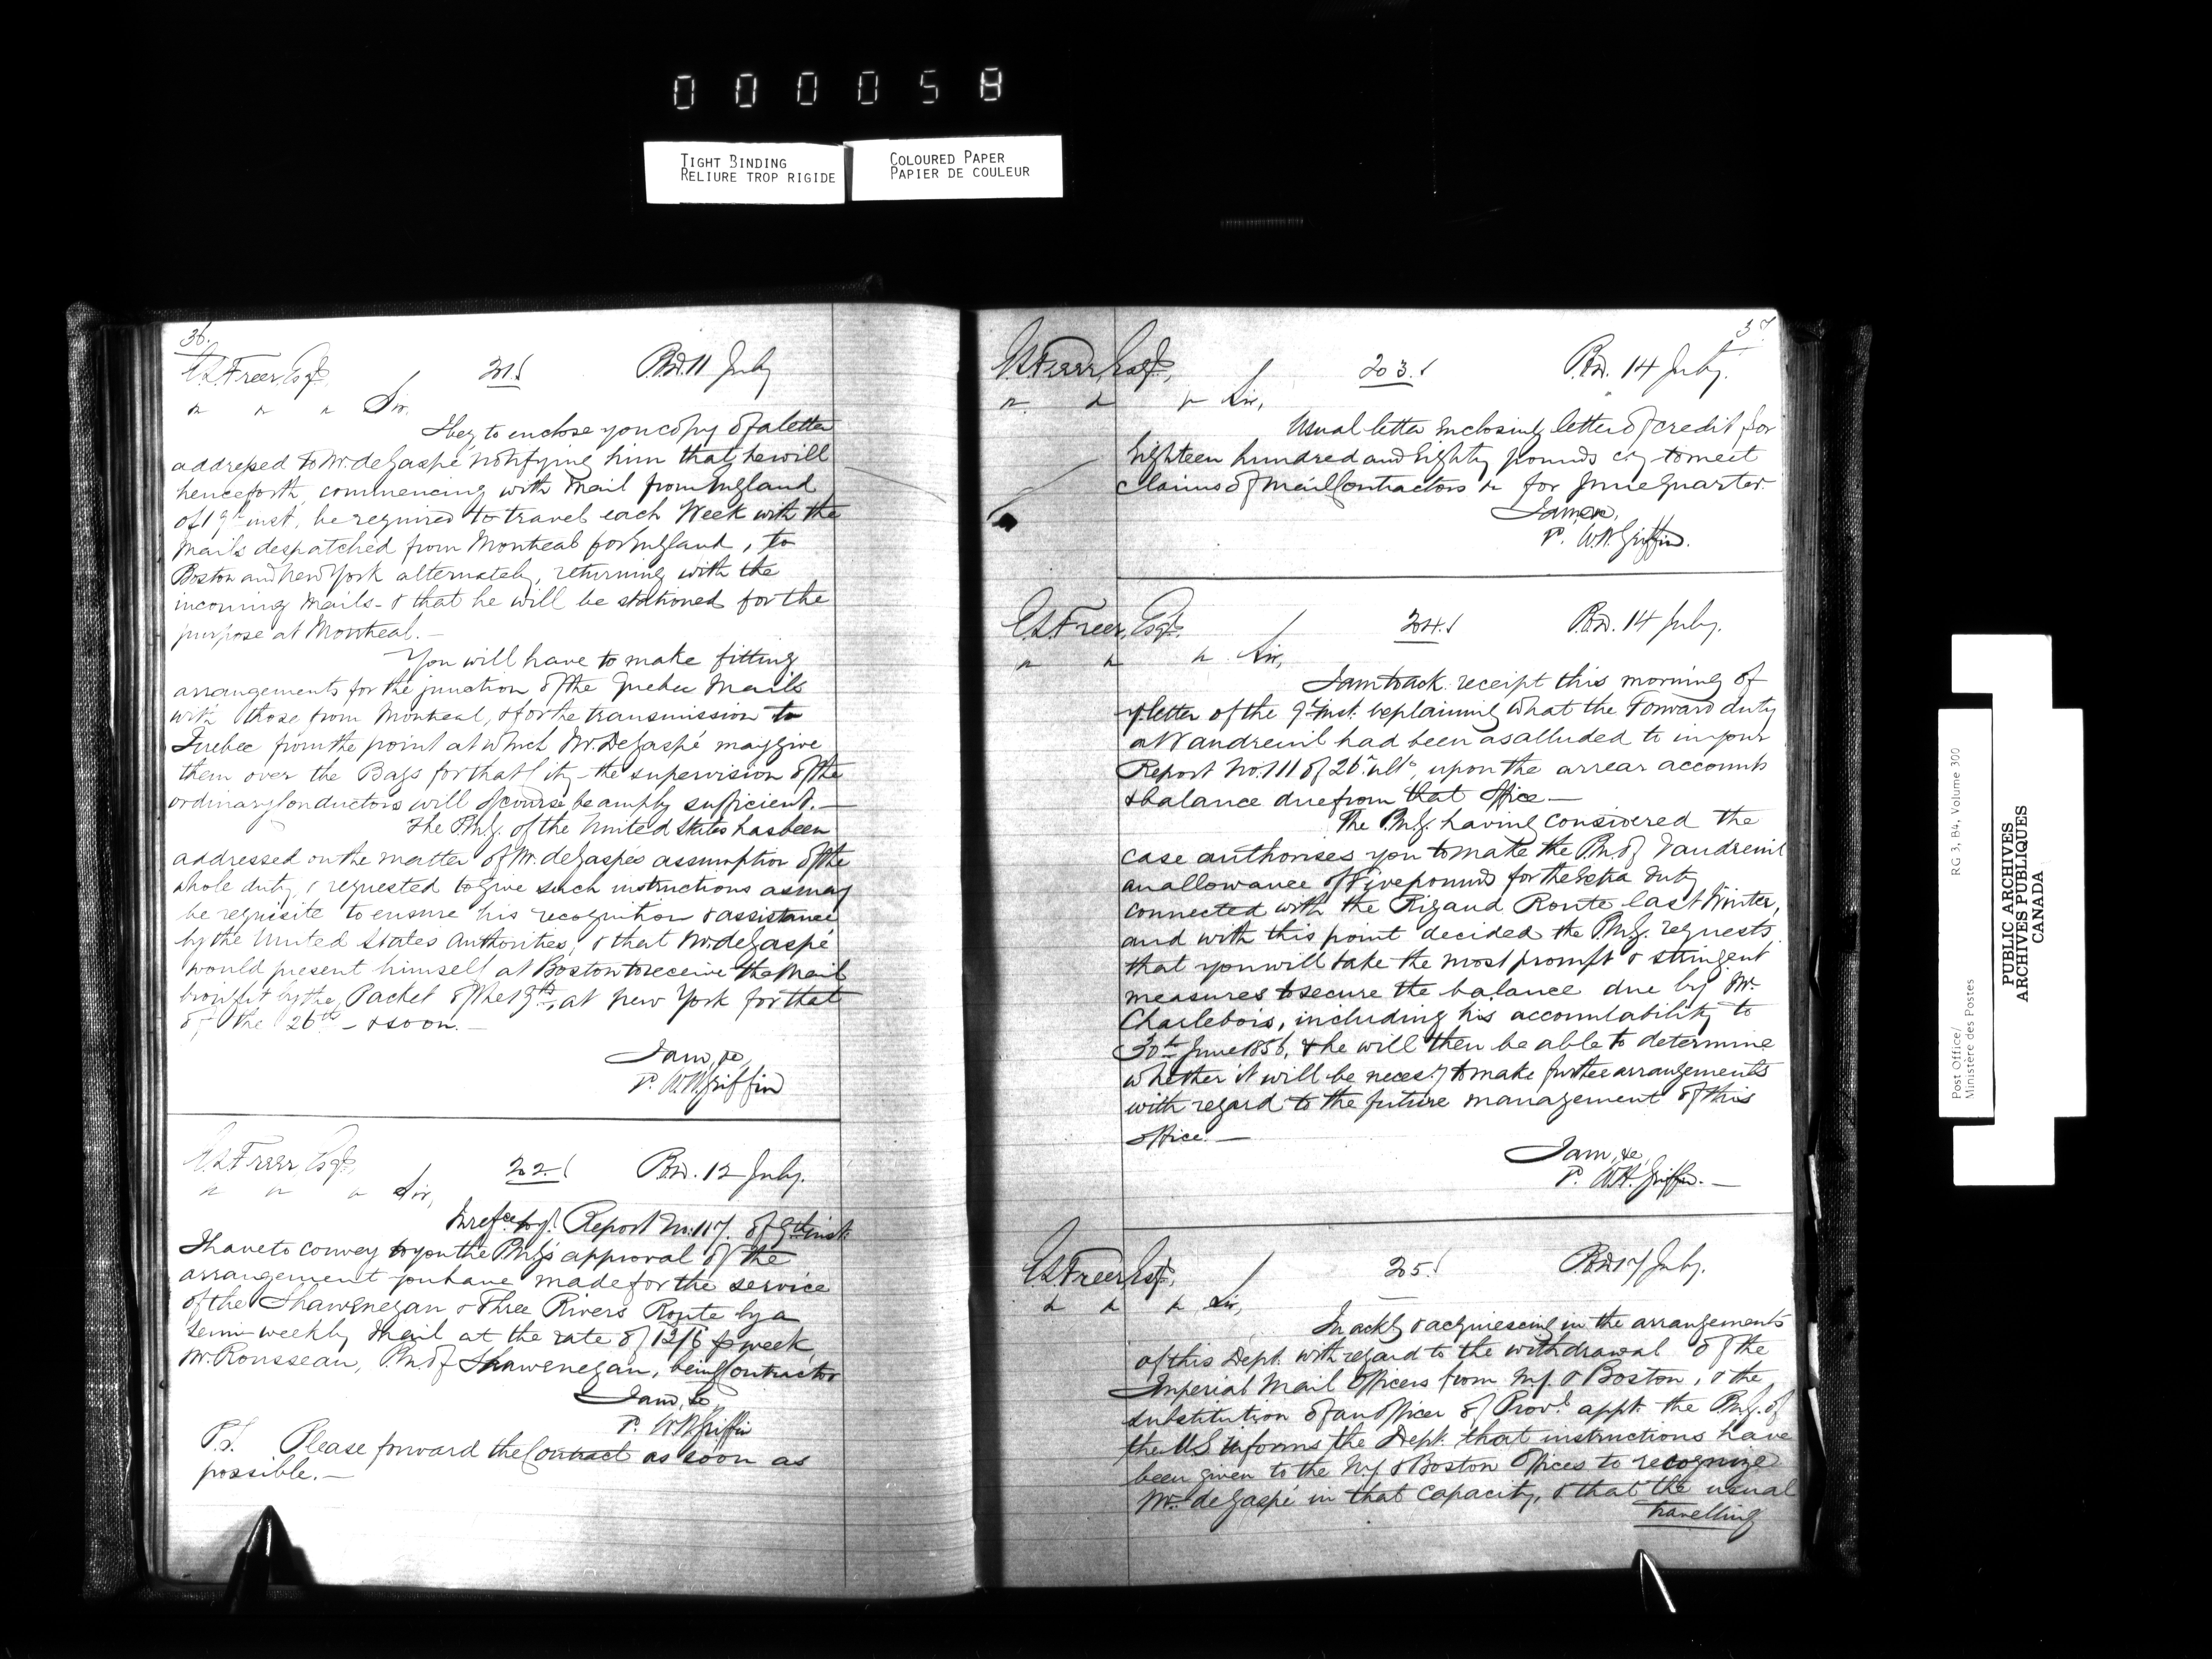 000058
TIGHT BINDING
RELIURE TROP RIGIDE
COLOURED PAPER
PAPIER DE COULEUR
36.
E.S. Freer, Esqr. 201. P.O.D. 11 July
" " " Sir,
I beg to enclose you copy of a letter
addressed to Mr. de Gaspé notifying him that he will
henceforth, commencing with mail from England
of 19th inst, be required to travel each Week with the
Mails despatched from Montreal for England, to
Boston and New York alternately, returning with the
incoming Mails - & that he will be stationed for the
purpose at Montreal. —
You will have to make fitting
arrangements for the junction of the Quebec Mails
with those from Montreal, & for the transmission to
Quebec from the point at which Mr. De Gaspé may give
them over the Bags for that City - the supervision of the
ordinary Conductors will of course be amply sufficient. —
The P.M.G. of the United States has been
addressed on the matter of Mr. de Gaspé's assumption of the
whole duty, & requested to give such instructions as may
be requisite to ensure his recognition & assistance
by the United States Authorities, & that Mr. de Gaspé
would present himself at Boston to receive the Mail
brought by the Packet of the 19th, at New York for that
of the 26th - & so on. —
I am, &c,
P. W.H. Griffin
E.S. Freer, Esqr. 202. P.O.D. 12 July.
" " " Sir,
In refce to yr. Report No. 117. of 9th inst.
I have to convey to you the P.M.G's approval of the
arrangement you have made for the service
of the Shawenegan & Three Rivers Route by a
semi-weekly Mail at the rate of 12/6 p week,
Mr. Rousseau, P.M. of Shawenegan, being Contractor
I am, &c
P. W.H. Griffin
P.S. Please forward the Contract as soon as
possible. —
37
E.S. Freer, Esqr. 203. P.O.D. 14 July.
" " " Sir,
Usual letter enclosing letter of credit for
Eighteen hundred and Eighty pounds cy to meet
claims of Mail Contractors &c for June Quarter.
I am &c,
P. W.H. Griffin.
E.S. Freer, Esqr. 204. P.O.D. 14 July.
" " " Sir,
I am to ack. receipt this morning of
yr letter of the 9th inst. explaining what the Forward duty
at Vaudreuil had been as alluded to in your
Report No. 111 of 26th ulto, upon the arrear accounts
& balance due from that Office —
The P.M.G. having considered the
case authorises you to make the P.M. of Vaudreuil
an allowance of Five pounds for the Extra duty
connected with the Rigaud Route last Winter,
and with this point decided the P.M.G. requests
that you will take the most prompt & stringent
measures to secure the balance due by Mr.
Charlebois, including his accountability to
30th June 1856, & he will then be able to determine
whether it will be necessy to make further arrangements
with regard to the future management of this
Office. —
I am, &c,
P. W.H. Griffin. —
E.S. Freer, Esqr. 205. P.O.D. 17 July.
" " " Sir,
In ackg & acquiescing in the arrangements
of this Dept. with regard to the withdrawal of the
Imperial Mail Officers from N.Y. & Boston, & the
substitution of an Officer of Provl. appt. the P.M.G. of
the U.S. informs the Dept. that instructions have
been given to the N.Y. & Boston Offices to recognize
Mr. de Gaspé in that capacity, & that the usual
travelling
Post Office/
Ministère des Postes
RG 3, B4, Volume 300
PUBLIC ARCHIVES
ARCHIVES PUBLIQUES
CANADA